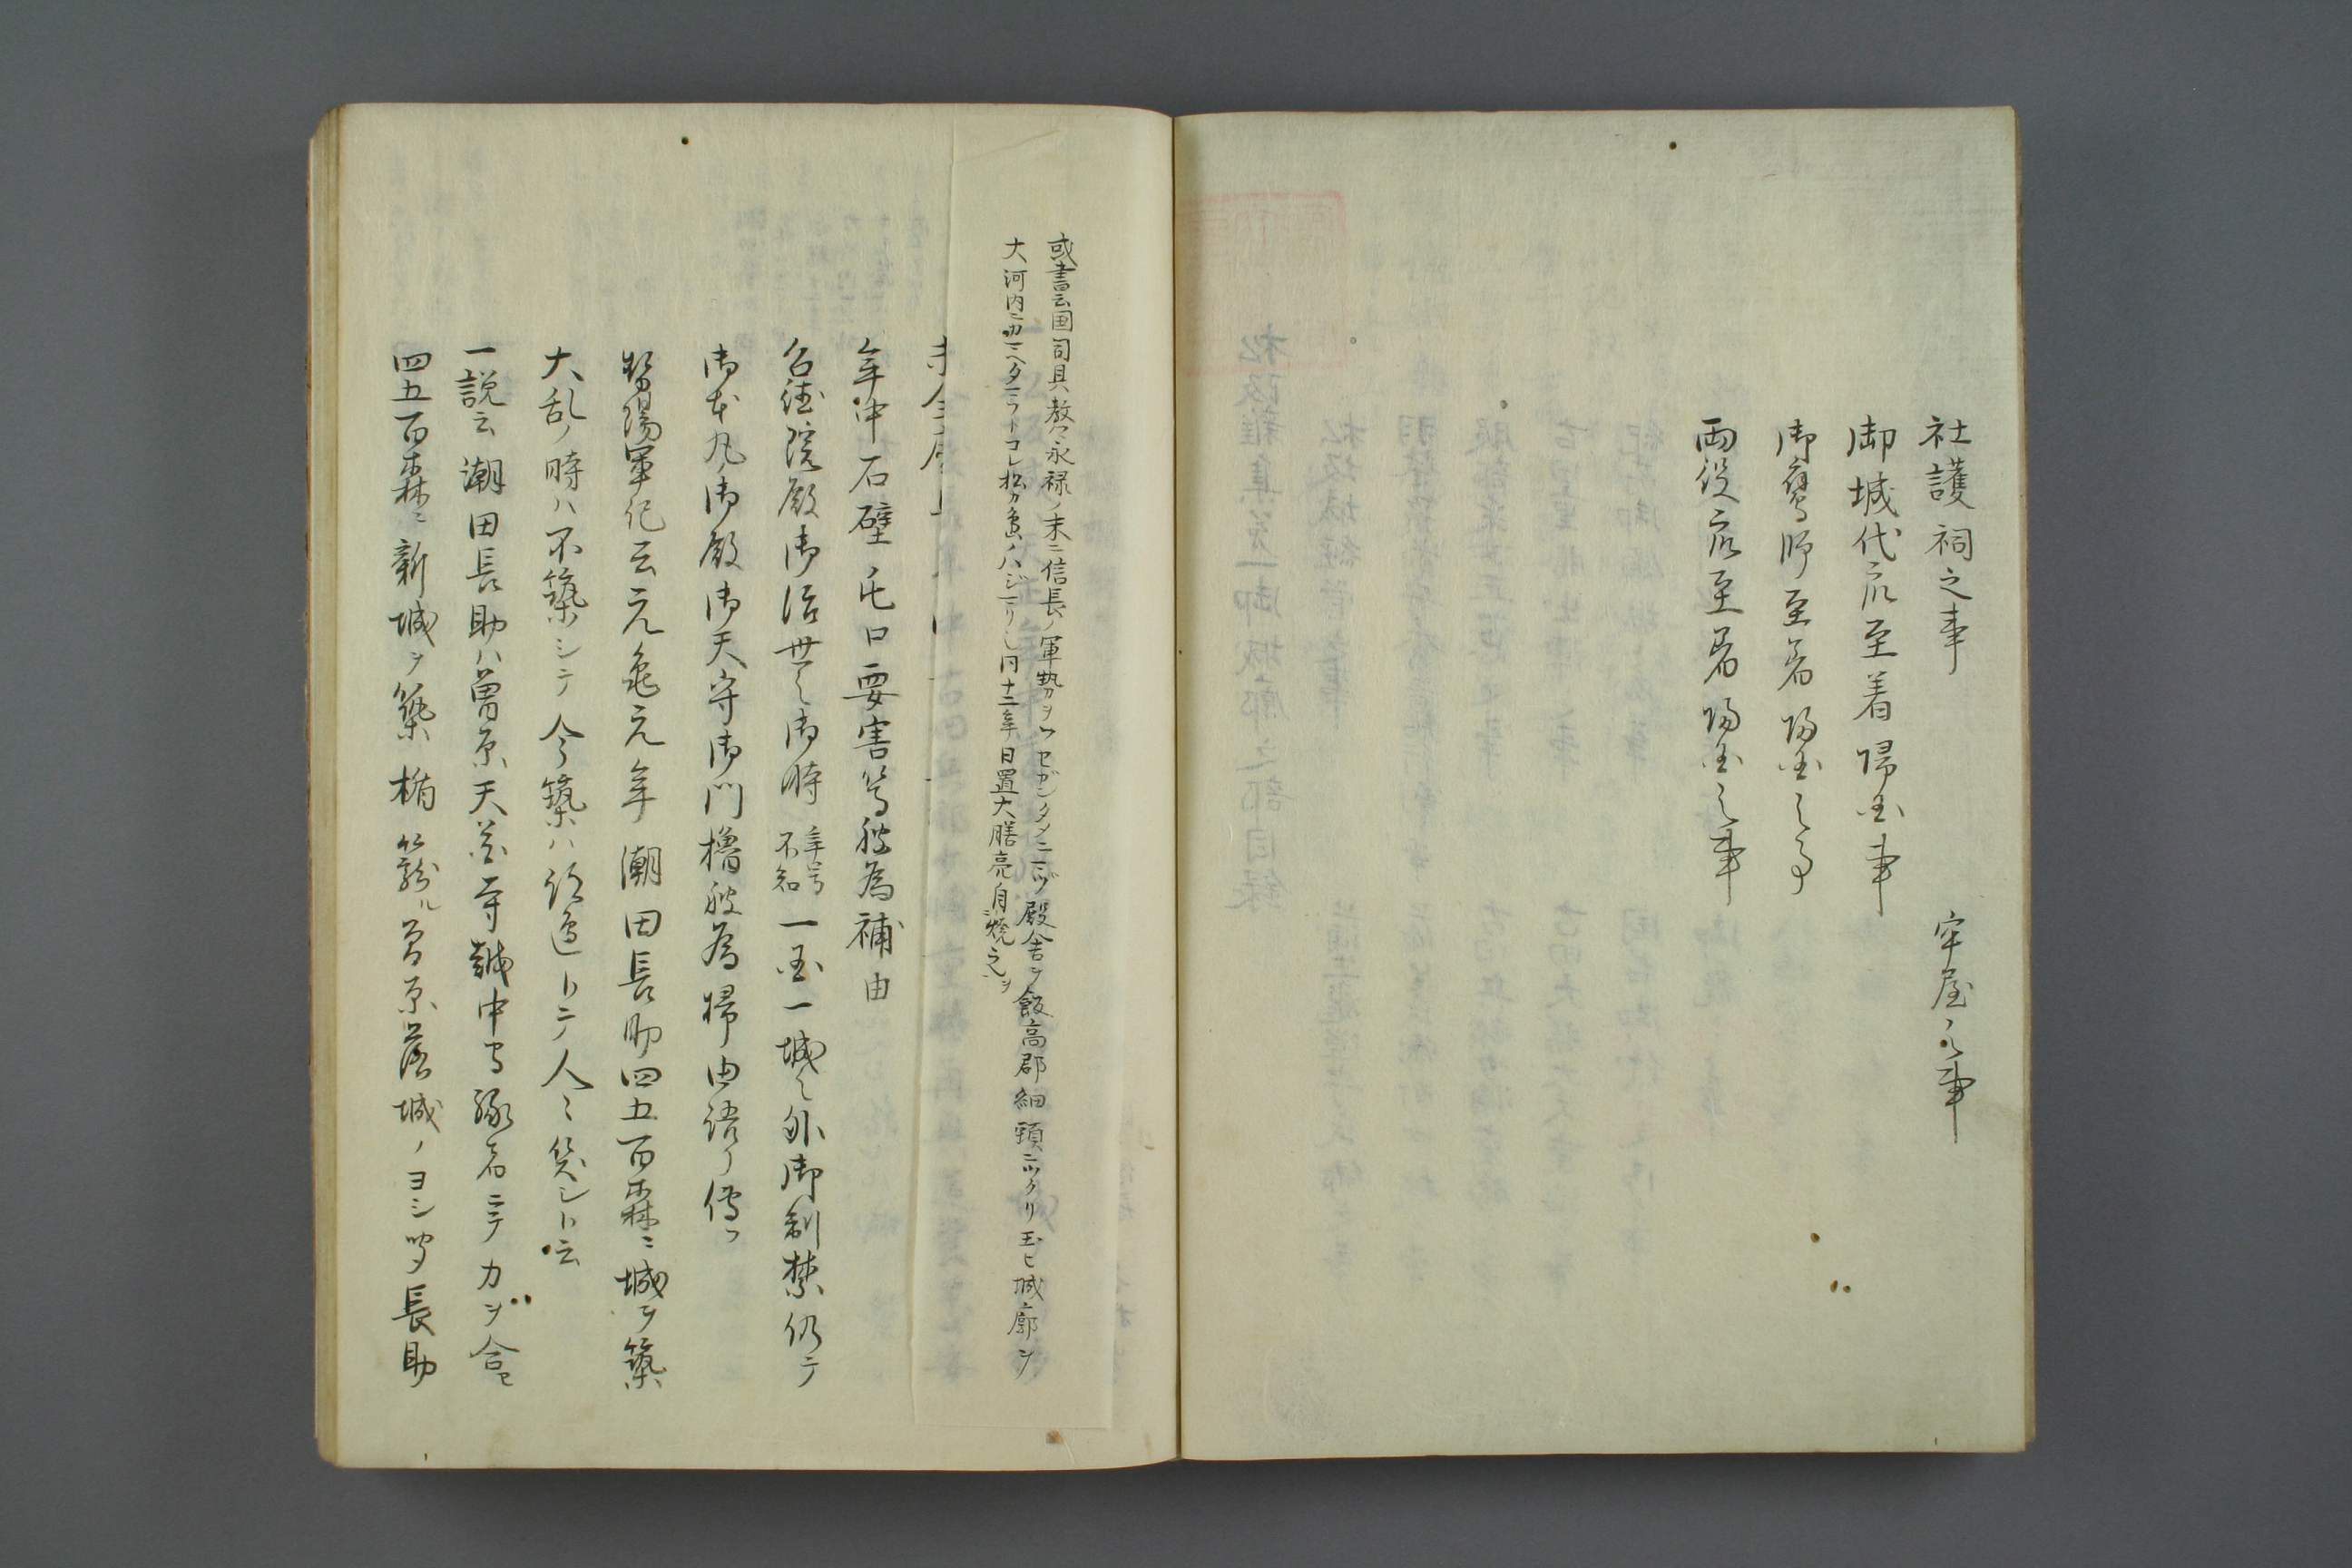 社護祠之事　牢屋之事
御城代衆至着帰国事
御鷹師至着帰国之事
両役衆至着帰国之事
或書云国司具教永禄ノ末ニ信長ノ軍勢ヲフセガンタメニ先ヅ殿舎ヲ飯高郡細頸ニツクリ玉ヒ城廓ヲ
大河内ニカマヘタマフトコレ松ヶ島ノハジマリ也同十二年日置大膳亮自焼之ヲ
年中石壁虎口要害等被為補由
台徳院殿御治世之御時年号不知一国一城之外御制禁仍テ
御本丸ノ御殿御天守御門櫓被為掃由語リ傳フ
勢陽軍記云元亀元年潮田長助四五百森ニ城ヲ築
大乱ノ時ハ不築シテ今築ハ ト人々笑シト云
一説云潮田長助ハ曽原天花寺 中 縁者ニテカヲ合セ
四五百森ニ新城ヲ築楯籠ル曽原落城ノヨシ聞長助